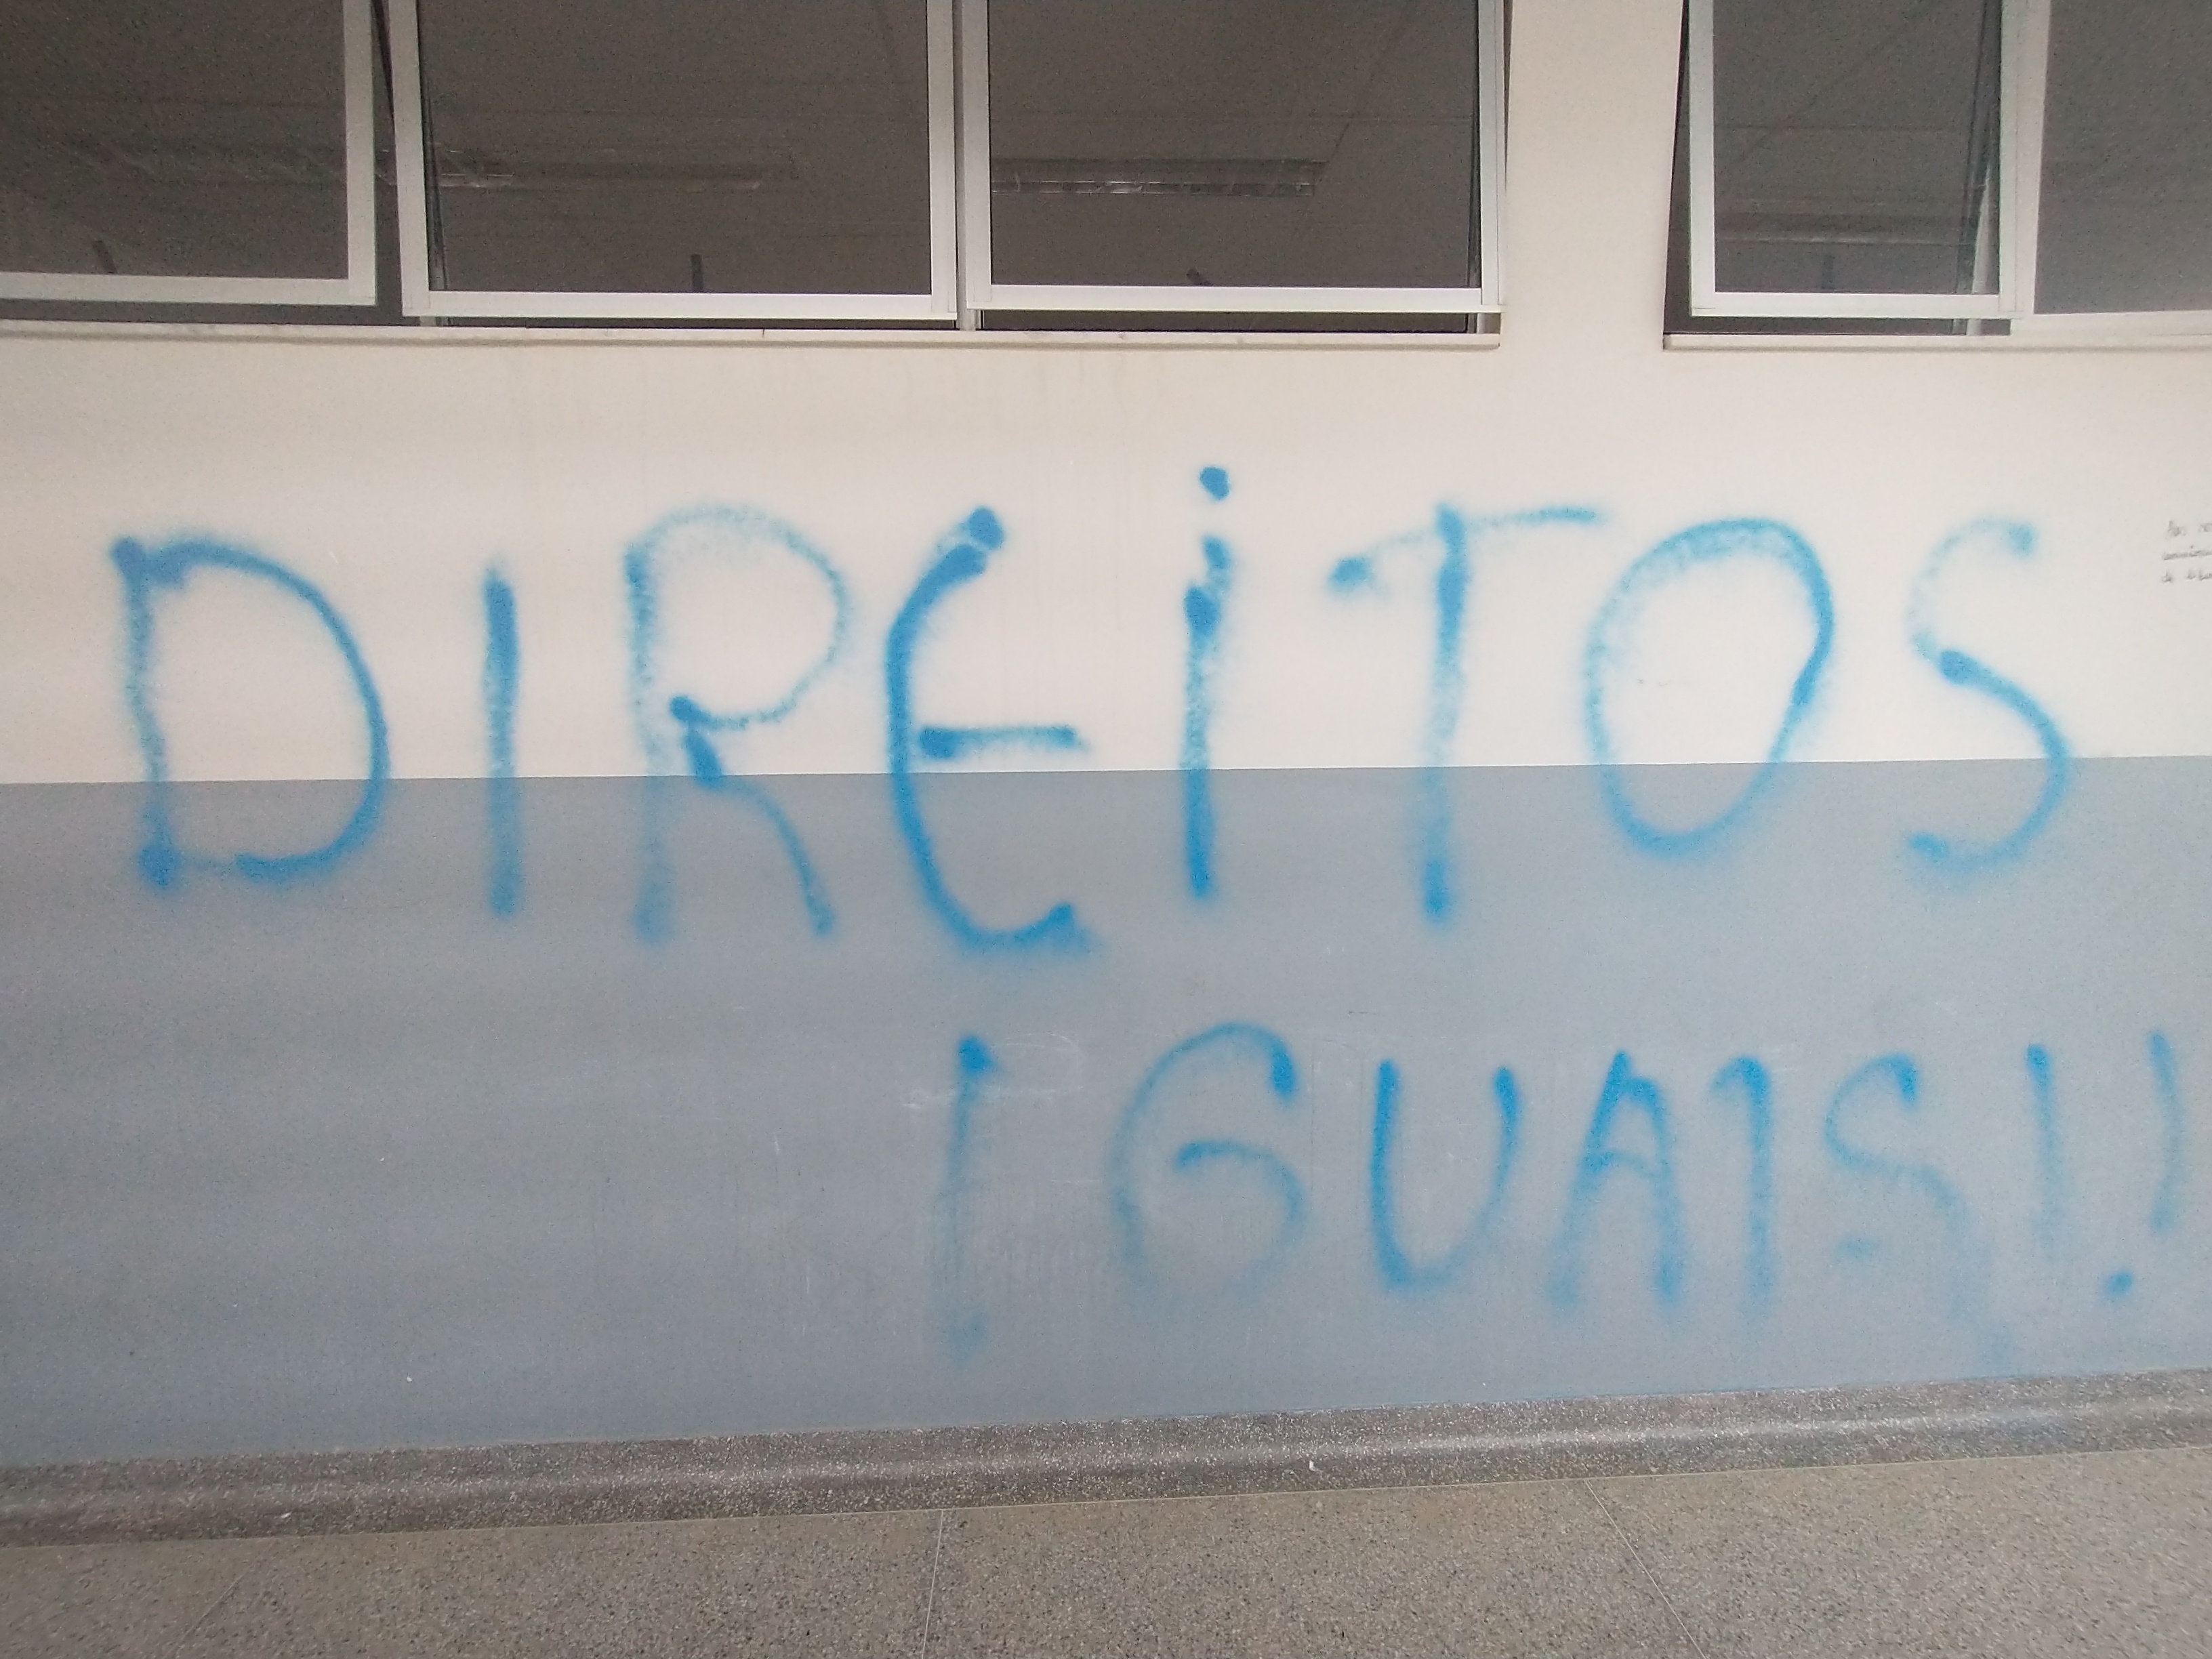 DIREiTOS
IGUAIS!!